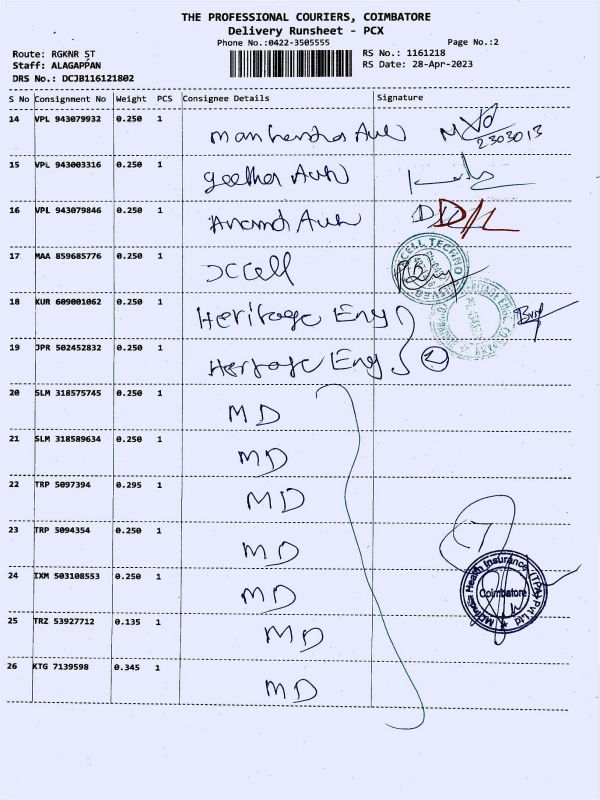 THE PROFESSIONAL COURIERS, COIMBATORE
Delivery Runsheet - PCX
Phone No.:0422-3505555
Page No.:2
Route: RGKNR ST
RS No.: 1161218
Staff: ALAGAPPAN
RS Date: 28-Apr-2023
DRS No.: DCJB116121802
S No Consignment No Weight PCS Consignee Details Signature
14 VPL 943079932 0.250 1
15 VPL 943003316 0.250 1 geetha Auto
16 VPL 943079846 0.250 1 Anand Auto
17 MAA 859685776 0.250 1 xccell
18 KUR 609001062 0.250 1 Heritage Eng
19 JPR 502452832 0.250 1 Heritage Eng 2
20 SLM 318575745 0.250 1 MD
21 SLM 318589634 0.250 1 MD
22 TRP 5097394 0.295 1 MD
23 TRP 5094354 0.250 1 MD
7
24 IXM 503108553 0.250 1 MD
Health Insurance (TPA) Pvt Ltd
Coimbatore
25 TRZ 53927712 0.135 1 MD
26 KTG 7139598 0.345 1 MD